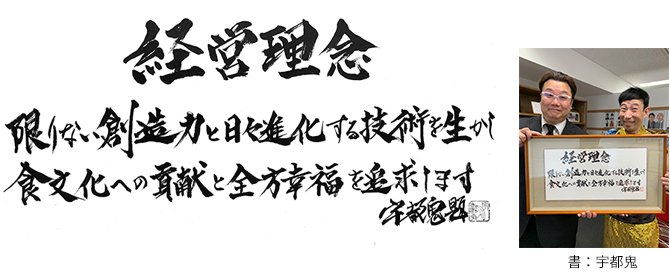 経営理念
限りない創造力と日々進化する技術を生かし
食文化への貢献と全方幸福を追求します
宇都鬼
経営理念
限りない創造力と日々進化する技術を生かし
食文化への貢献と全方幸福を追求します
書：宇都鬼